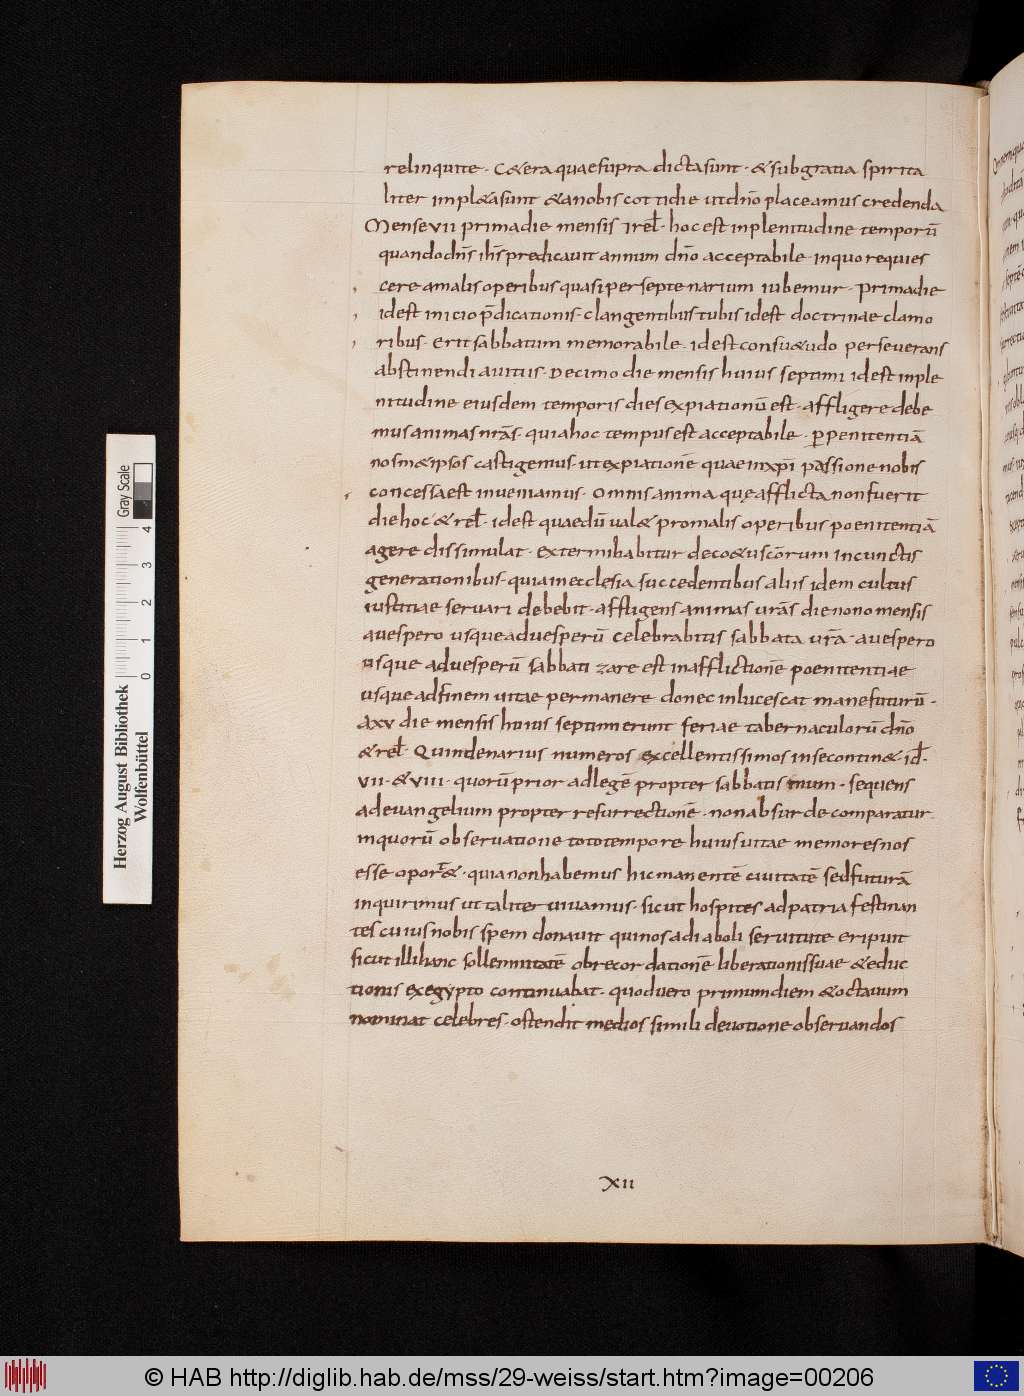 relinquite· C&era quae supra dicta sunt· & sub gratia spirita
liter impl&a sunt & a nobis cottidie ut dn̄o placeamus credenda
Mense vii prima die mensis 7 rel̄· hoc est in plenitudine temporū
quando dn̄s ih̄s predicavit annum dn̄o acceptabile· in quo requies
cere a malis operibus quasi per septenarium iubemur· prima die
id est inicio p̄dicationis· clangentibus tubis id est doctrinae clamo
ribus· erit sabbatum memorabile· id est consu&udo perseverans
abstinendi a vitiis· Decimo die mensis huius septimi id est in ple
nitudine eiusdem temporis dies expiationū est· affligere debe
mus animas nr̄as· quia hoc tempus est acceptabile· ꝑ penitentiā
nosm&ipsos castigemus· ut expiationē quae in xp̄i passione nobis
concessa est inveniamus· Omnis anima quę afflicta non fuerit
die hoc· & rel̄· id est quae dū val& pro malis operibus poenitentiā
agere dissimulat· exterminabitur de co&u sc̄orum in cunctis
generationibus· quia in ecclesia succedentibus aliis idem cultus
iustitiae servari debebit· affligens animas vr̄as die nono mensis
a vespero usque ad vesperū celebrabitis sabbata vr̄a· a vespero
usque ad vesperū sabbatizare est in afflictionē poenitentiae
usque ad finem vitae permanere donec inlucescat mane futurū·
A xv die mensis huius septimi erunt feriae tabernaculorū dn̄o
& rel̄· Quindenarius numeros excellentissimos in se contin&· id̄·
vii· & viii· quorū prior ad legē propter sabbatismum· sequens
ad evangelium propter resurrectionē· non absurde comparatur·
in quorū observatione toto tempore huius vitae memores nos
esse oport&· quia non habemus hic manentē civitatē sed futurā
inquirimus ut taliter vivamus· sicut hospites ad patria festinan
tes cuius nobis spem donavit qui nos a diaboli servitute eripuit
sicut illi hanc sollemnitatē ob recordationē liberationis suae & educ
tionis ex egypto continuabat· quod vero primum diem & octavum
nominat celebres· ostendit medios simili devotione observandos
XII
Herzog August Bibliothek
Wolfenbüttel
0 1 2 3 4
Gray Scale
© HAB http://diglib.hab.de/mss/29-weiss/start.htm?image=00206